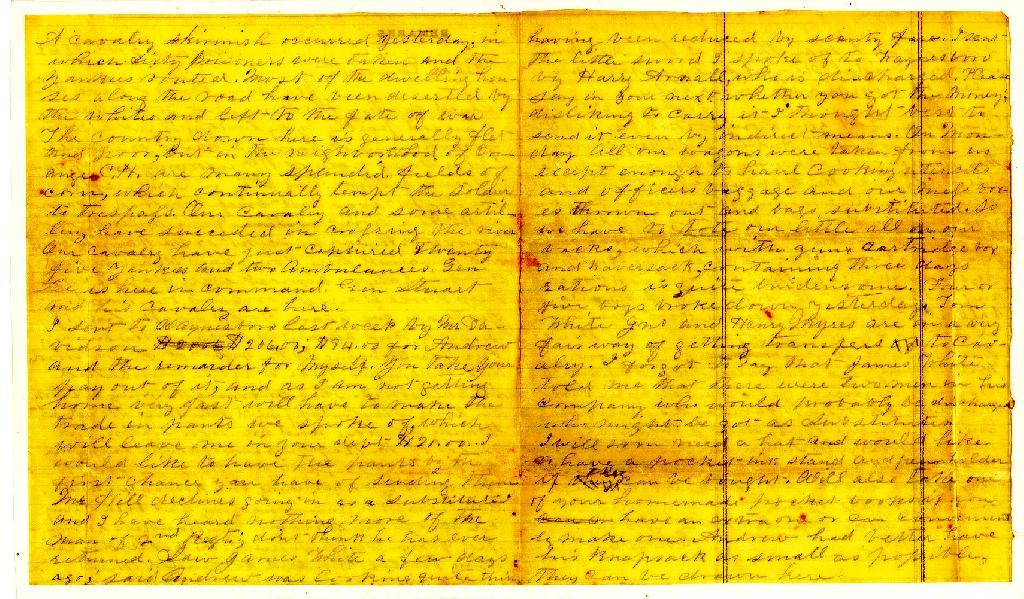 A cavalry skirmish occurred yesterday, in
which sixty prisoners were taken and the
Yankees routed. Most of the dwelling hou-
ses along the road have been deserted by
the whites and left to the fate of war
The country down here is generally flat
and poor, but in the neighborhood of
C.H. are many splendid fields of
corn, which continually tempt the soldier
to trespass. Our cavalry and some artil-
lery have succeeded in crossing the river
Our cavalry have just captured twenty
five Yankees and two ambulances. Gen
Lee is here in command. Gen Stuart
and his cavalry are here.
I sent to Waynesboro last week by Mr Da-
vidson $206.00, $84.00 for Andrew
and the remainder for myself. You take your
pay out of it, and as I am not getting
home very fast will have to make the
trade in pants we spoke of, which
will leave me in your debt $21.00. I
would like to have the pants by the
first chance you have of sending them
Mr Hill declines going in as a substitute
and I have heard nothing more of the
man of 2nd Regt; don't think he has ever
returned. I saw James White a few days
ago, said Andrew was looking quite thin
having been reduced by scanty fare. I sent
the little sword I spoke of to Waynesboro
by Harry Arnall, who is discharged. Please
say in your next whether you got the money;
disliking to carry it I thought best to
send it even by indirect means. On Mon-
day all our wagons were taken from us
except enough to haul cooking utensils
and officers baggage and our mess box-
es thrown out and bags substituted. So
we have to tote our little all on our
backs, which with gun, cartridge box
and haversack, containing three days
rations is quite burdensome. Four or
five boys broke down yesterday. Tom
White and Henry Myres are in a very
fair way of getting transfers to Cav-
alry. I forgot to say that James White
told me that there were two men in his
company who would probably be discharged
who might be got as substitutes
I will soon need a hat and would like
to have a pocket ink stand and pen holder
if they can be bought. Will also take one
of your homemade pocket books if you
have an extra one or can convenient-
ly make one. Andrew had better have
his knapsack as small as possible,
They can be drawn here.